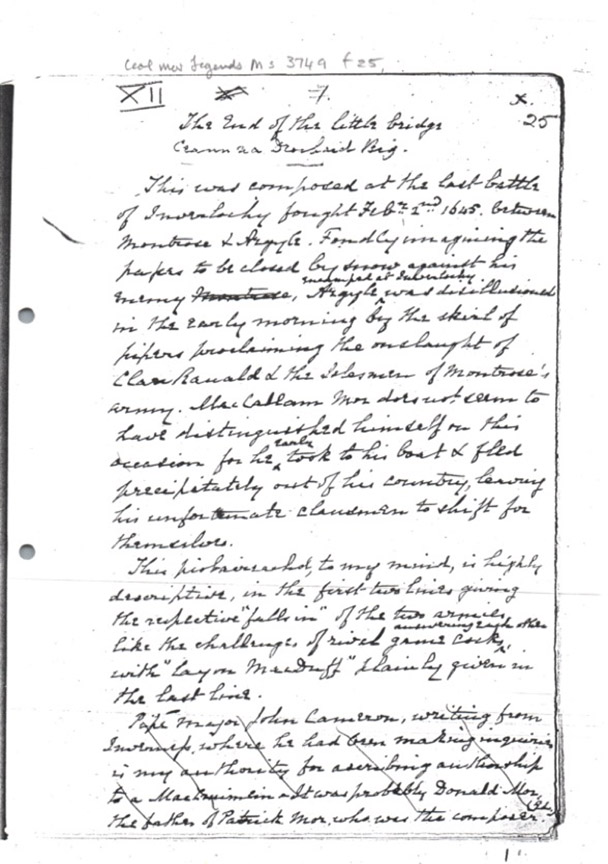 Ceol Mor Legends MS 3749 f 25.
XII 7. x.
25
The End of the little bridge
Ceann na Drochaid Big.
This was composed at the last battle
of Inverlochy fought Feby 2nd 1645. between
Montrose & Argyle. Fondly imagining the
passes to be closed by snow against his
enemy Montrose, encamped at Inverlochy Argyle was disillusioned
in the early morning by the skirl of
pipers proclaiming the onslaught of
Clan Ranald & the Islesmen of Montrose's
army. MacCallam Mor does not seem to
have distinguished himself on this
occasion for he early took to his boat & fled
precipitately out of his country, leaving
his unfortunate clansmen to shift for
themselves.
This piobaireachd, to my mind, is highly
descriptive, in the first two lines giving
the respective "falls in" of the two armies
like the challenges of rival game cocks, answering each other
with "Lay on MacDuff" plainly given in
the last line.
Pipe major John Cameron, writing from
Inverness, where he had been making inquiries
is my authority for ascribing authorship
to a MacCruimein. It was probably Donald Mor,
the father of Patrick Mor, who was the composer.